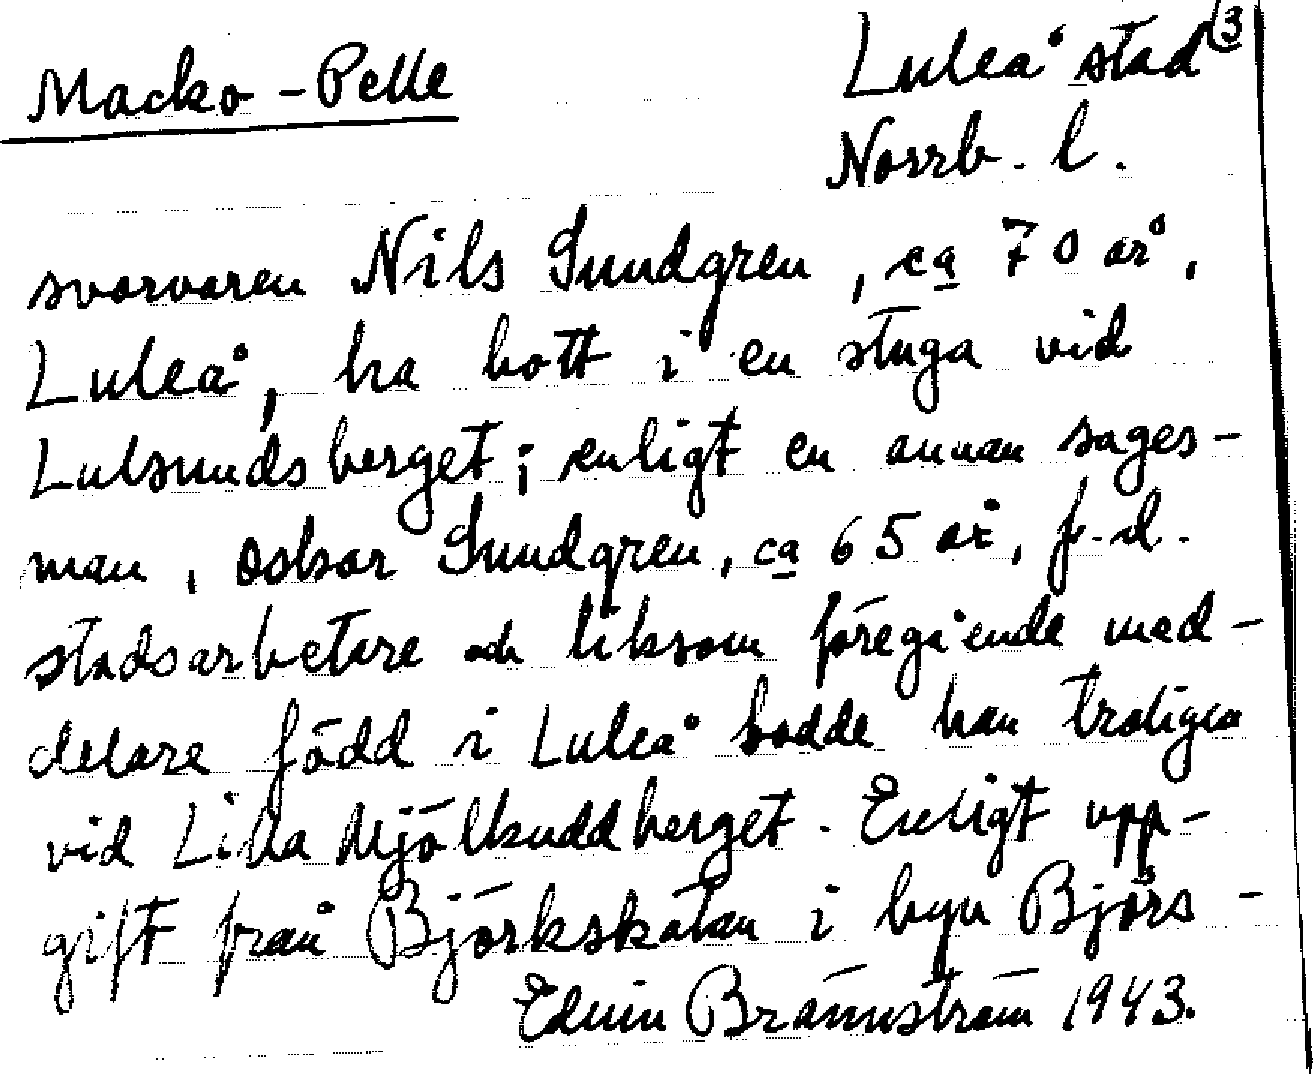 Macko-Pelle
Luleå stad 3
Norrb. l.
svarvaren Nils Sundgren, ca 70 år,
Luleå, ha bott i en stuga vid
Lulsundsberget; enligt en annan sages-
man, Oskar Sundgren, ca 65 år, f.d.
stadsarbetare och liksom föregående med-
delare född i Luleå bodde han troligen
vid Lilla Mjölkuddberget. Enligt upp-
gift från Björkskatan i byn Björs-
Edvin Brännström 1943.